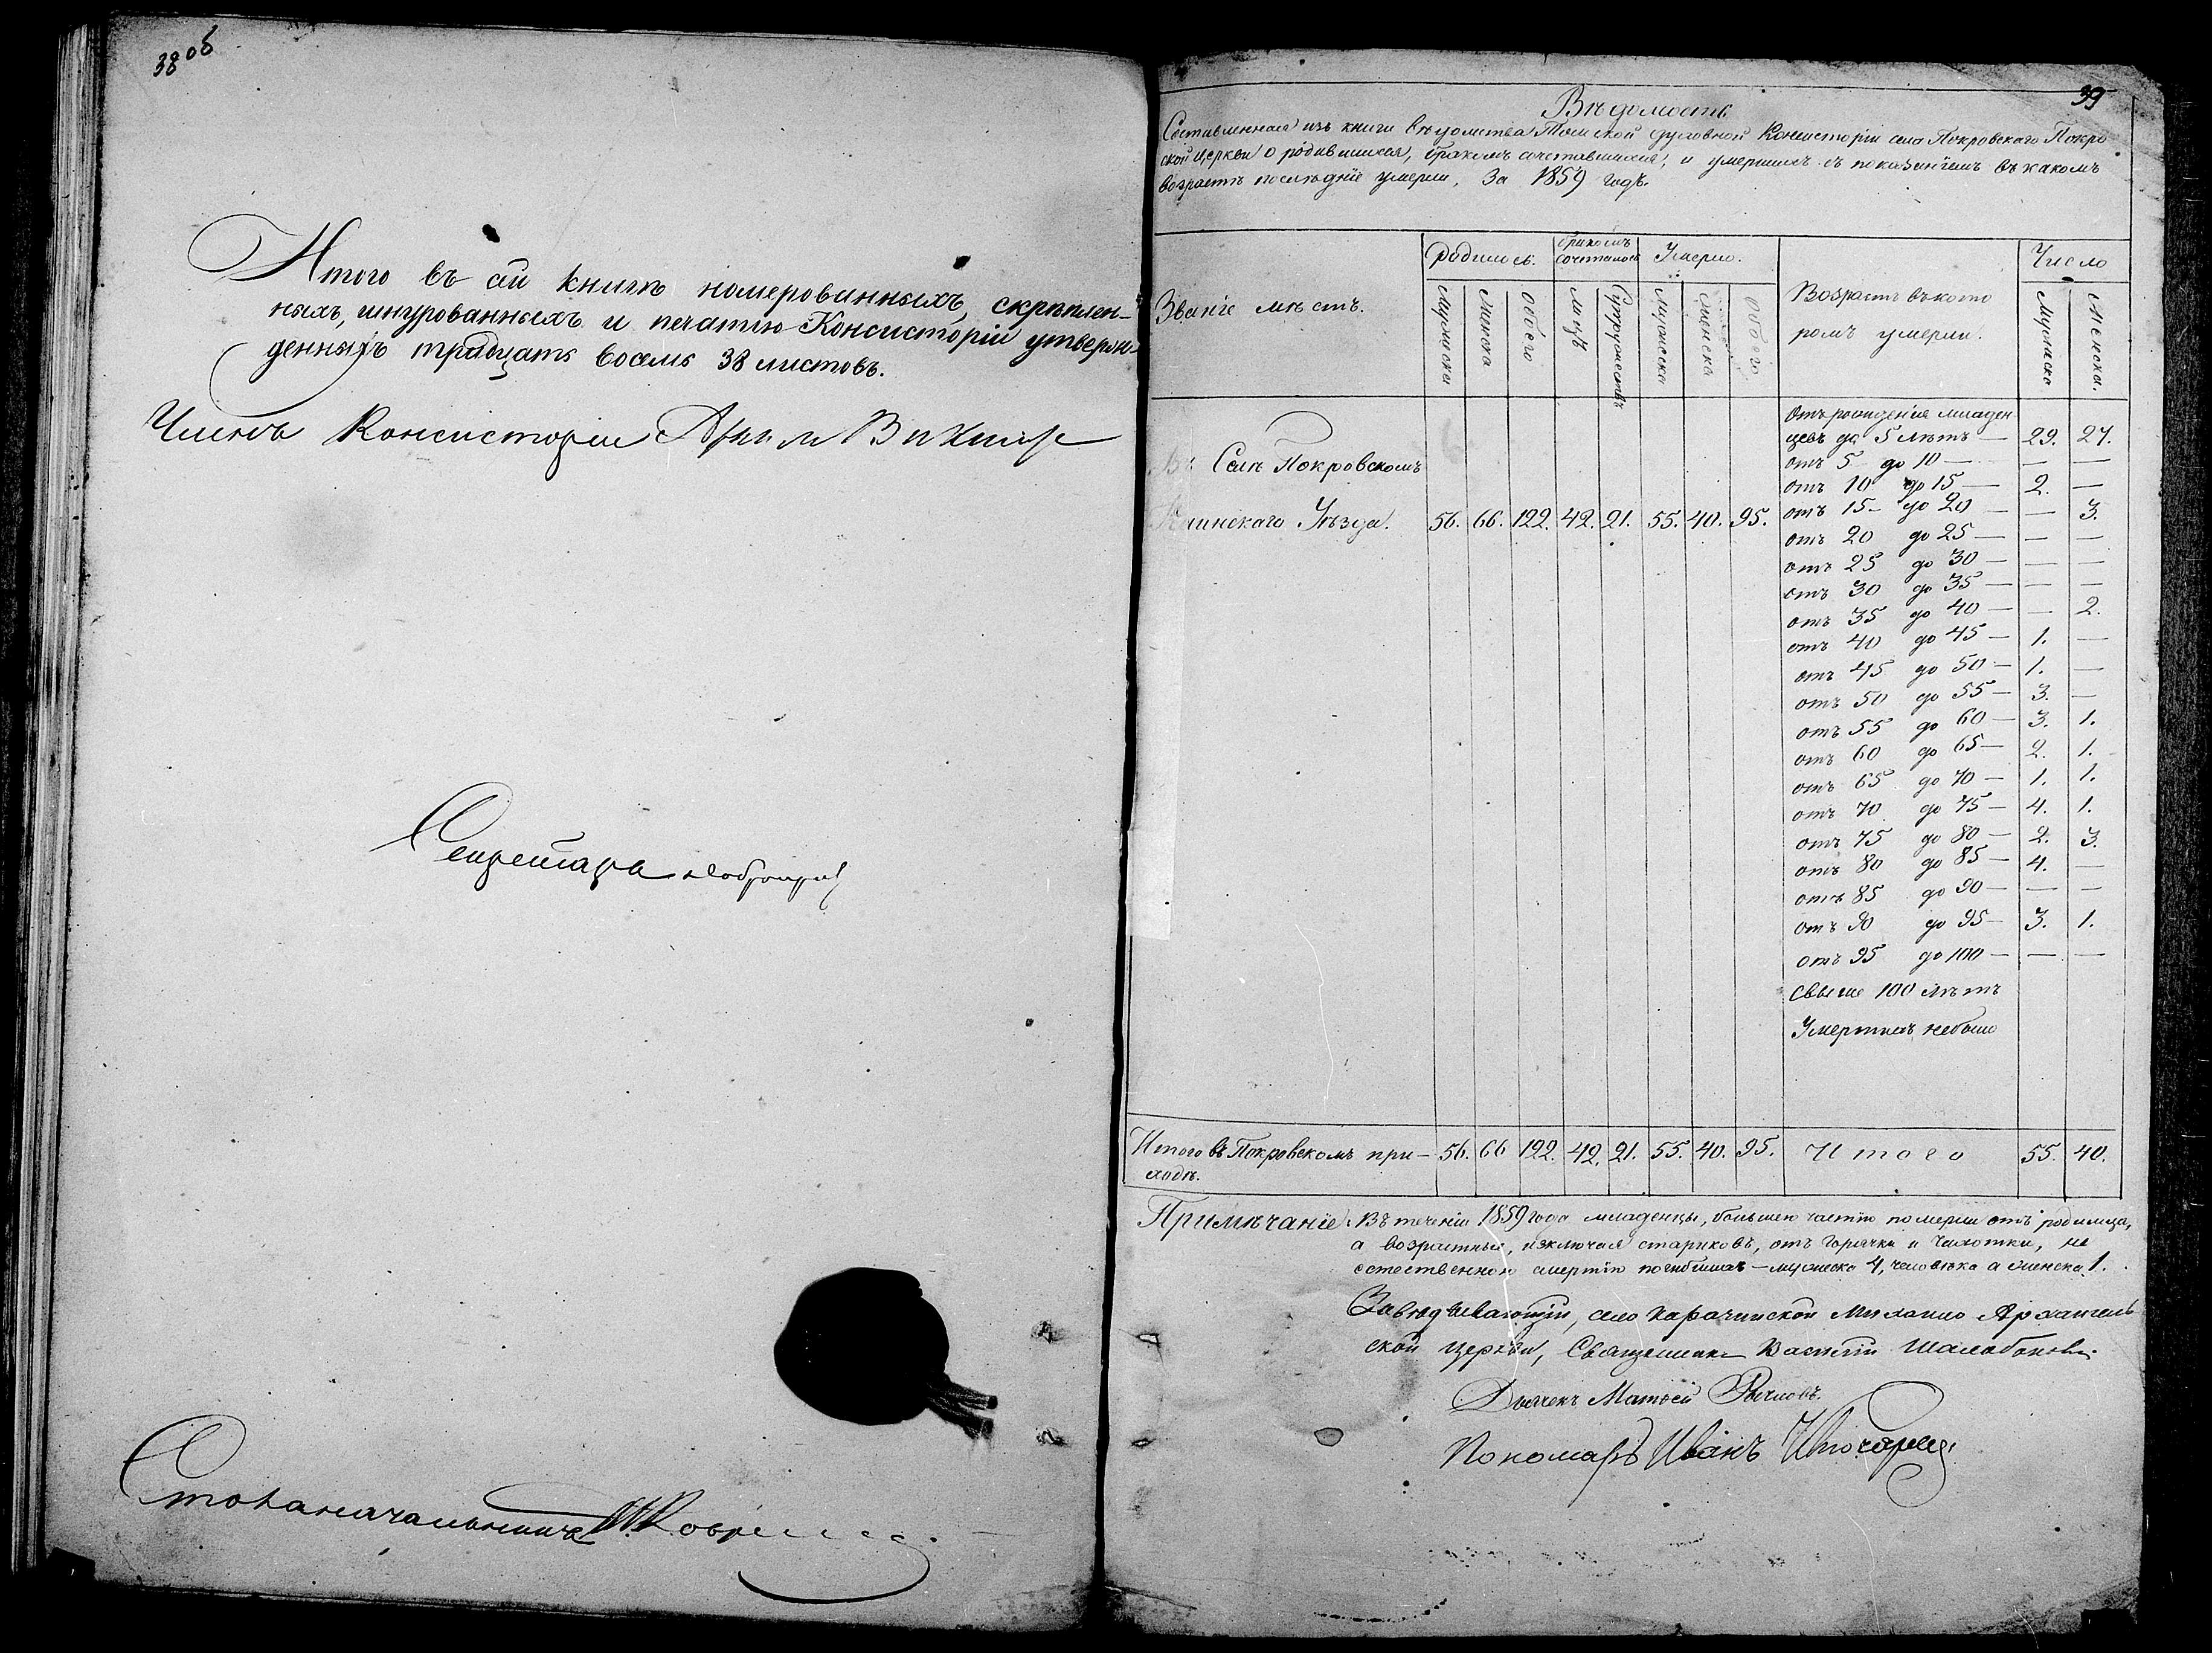 38 об
Итого въ сей книгѣ номерованныхъ, скрѣплен-
ныхъ, шнурованныхъ и печатью Консисторіи утверж-
денныхъ тридцать восемь 38 листовъ.
Членъ Консисторіи
Секретарь
Столоначальникъ
39
Вѣдомость
Составленная изъ книги вѣдомства Томской духовной Консисторіи села Покровскаго Покро
ской церкви о родившихся, бракомъ сочетавшихся, и умершихъ съ показаніемъ въ какомъ
возрастѣ послѣдніе умерли, За 1859 годъ.
Званіе мѣстъ. Родилось. Бракомъ сочеталось Умерло. Возрастъ въ кото Число
ромъ умерли.
Мужеска Женска Обоего Мужъ Супружествъ Мужеска Женска Обоего Мужеска Женска.
Отъ рожденія младен
цевъ до 5 лѣтъ — 29. 27.
Въ Селѣ Покровскомъ
отъ 5 до 10 — — —
отъ 10 до 15 — 2. —
Каинскаго Уѣзда. 56. 66. 122. 42. 21. 55. 40. 95. отъ 15 — до 20 — — 3.
отъ 20 до 25 — — —
отъ 25 до 30 — — —
отъ 30 до 35 — — —
отъ 35 до 40 — — 2.
отъ 40 до 45 — 1. —
отъ 45 до 50 — 1. —
отъ 50 до 55 — 3. —
отъ 55 до 60 — 3. 1.
отъ 60 до 65 — 2. 1.
отъ 65 до 70 — 1. 1.
отъ 70 до 75 — 4. 1.
отъ 75 до 80 — 2. 3.
отъ 80 до 85 — 4. —
отъ 85 до 90 — — —
отъ 90 до 95 — 3. 1.
отъ 95 до 100 — — —
свыше 100 лѣтъ
Умершихъ небыло
Итого въ Покровскомъ при- 56. 66 122. 42. 21. 55. 40. 95. Итого 55. 40.
ходѣ.
Примѣчаніе. Въ теченіи 1859 года младенцы, большею частію померли отъ родимца,
а возрастные, изключая стариковъ, отъ горячки и чахотки, не
естественною смертію погибшихъ — мужеска 4, человѣка а женска 1.
Завѣдывающій, село Карачинской Михаило Архангель
ской церкви, Священникъ Василій Шалобановъ
Дьячекъ Матвей Рычковъ.
Пономарь Иванъ